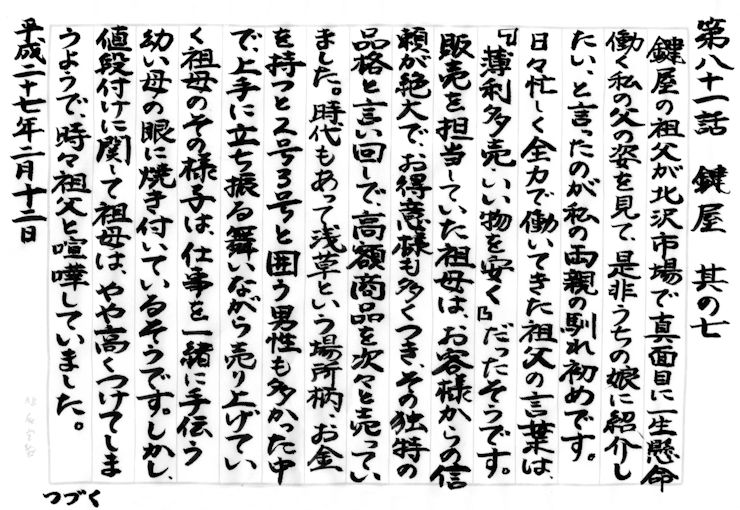 第八十一話　鍵屋　其の七
鍵屋の祖父が北沢市場で真面目に一生懸命
働く私の父の姿を見て、是非うちの娘に紹介し
たい、と言ったのが私の両親の馴れ初めです。
日々忙しく全力で働いてきた祖父の言葉は、
『薄利多売・いい物を安く』だったそうです。
販売を担当していた祖母は、お客様からの信
頼が絶大で、お得意様も多くつき、その独特の
品格と言い回しで、高額商品を次々と売ってい
ました。時代もあって浅草という場所柄、お金
を持つと2号3号と囲う男性も多かった中
で、上手に立ち振る舞いながら売り上げてい
く祖母のその様子は、仕事を一緒に手伝う
幼い母の眼に焼き付いているそうです。しかし、
値段付けに関して祖母は、やや高くつけてしま
うようで、時々祖父と喧嘩していました。
平成二十七年二月十二日
つづく